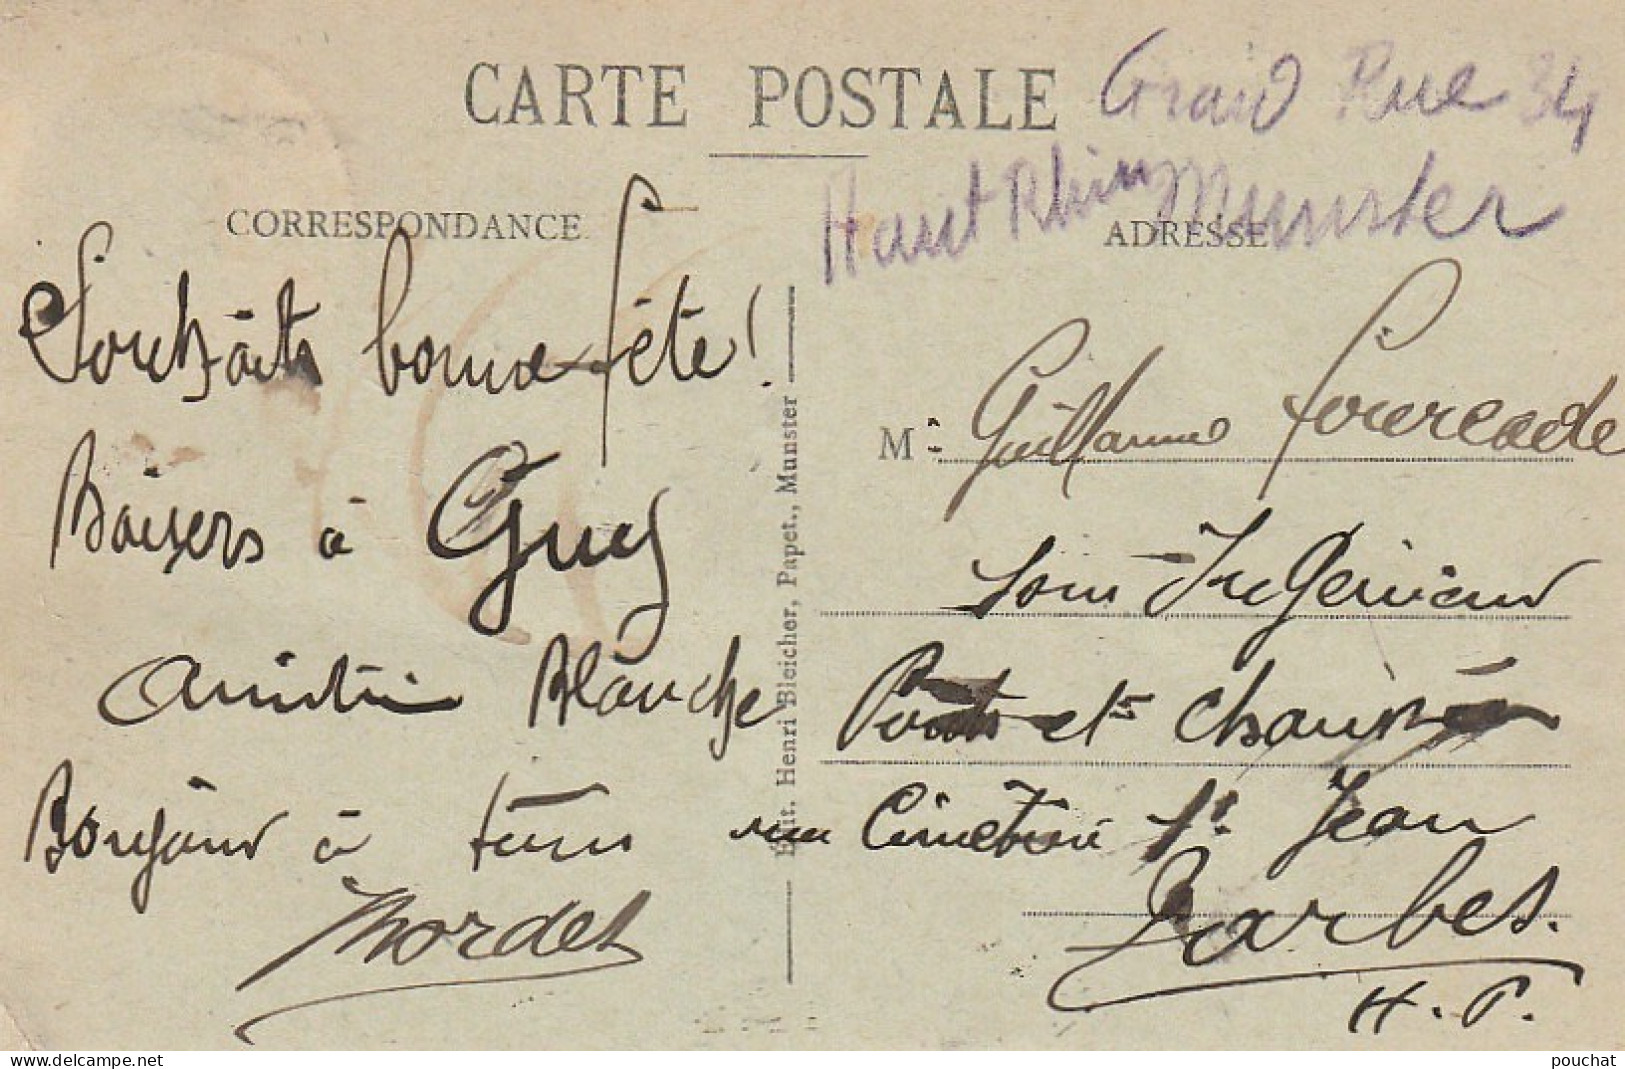 CARTE POSTALE
Grand Rue 34
Haut Rhin Munster
CORRESPONDANCE
ADRESSE
Souhaits bonne fête!
Baisers à Guy
Blanche
Bonjour à tous
Edit. Henri Bleicher, Papet., Munster
M: Guillaume Fourcade
Sous Ingénieur
Ponts et Chaussée
rue Cimetière St. Jean
Tarbes.
H. P.
delcampe.net
pouchat